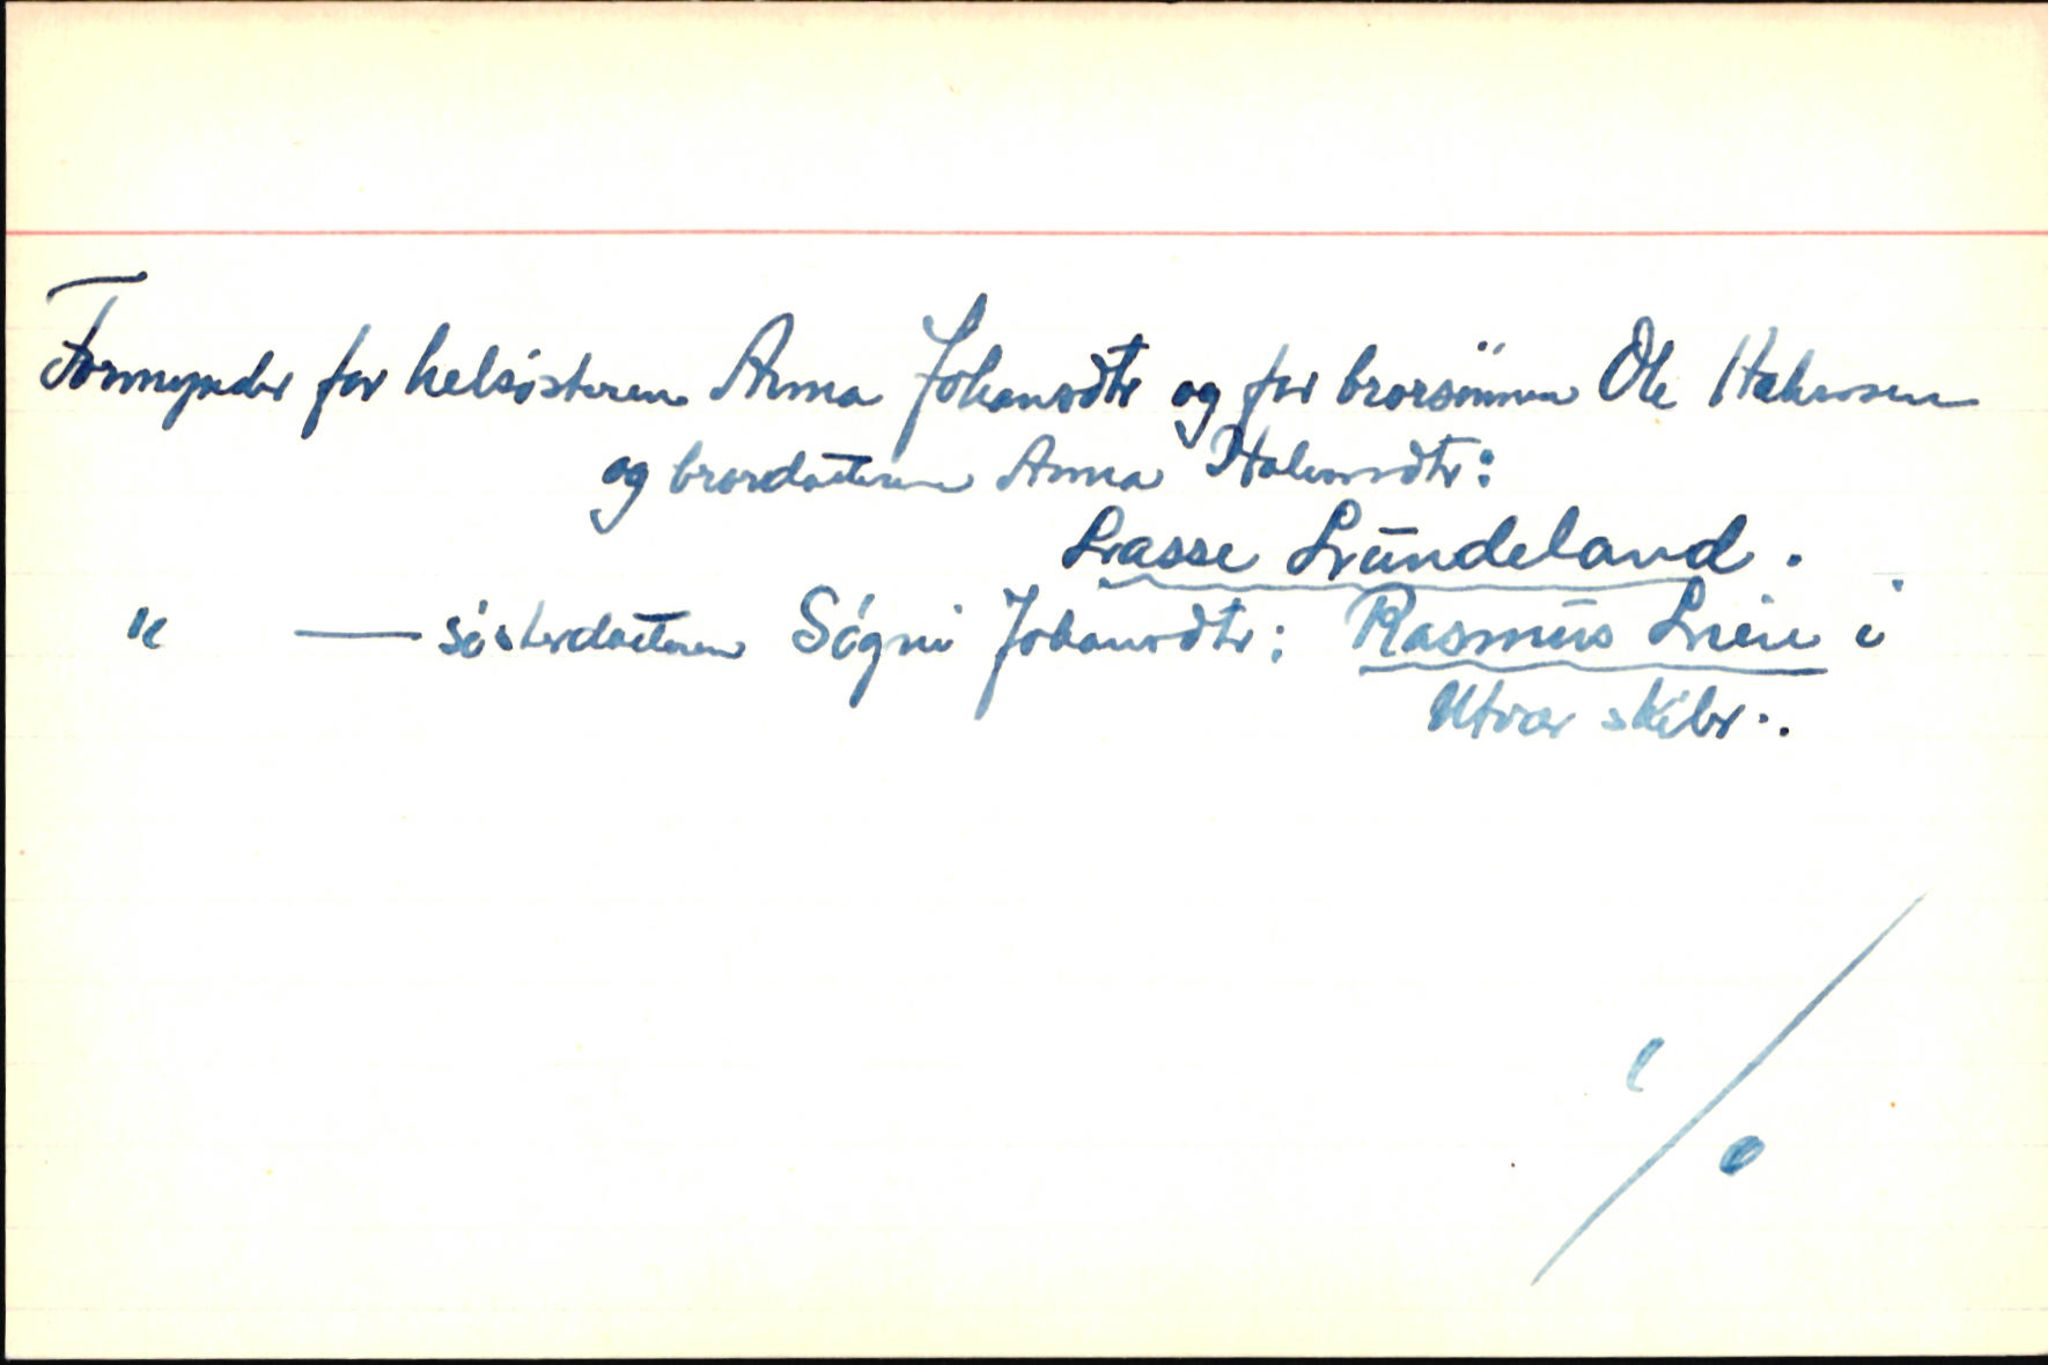 Formynder for helsösteren Anna Johansdtr og for brorsönnen Ole Halvorsen
og brordatteren Anna Halvorsdtr:
Lasse Lundeland.
" — sösterdatteren Sögni Johansdtr: Rasmus Leire i
Utvær skibr..